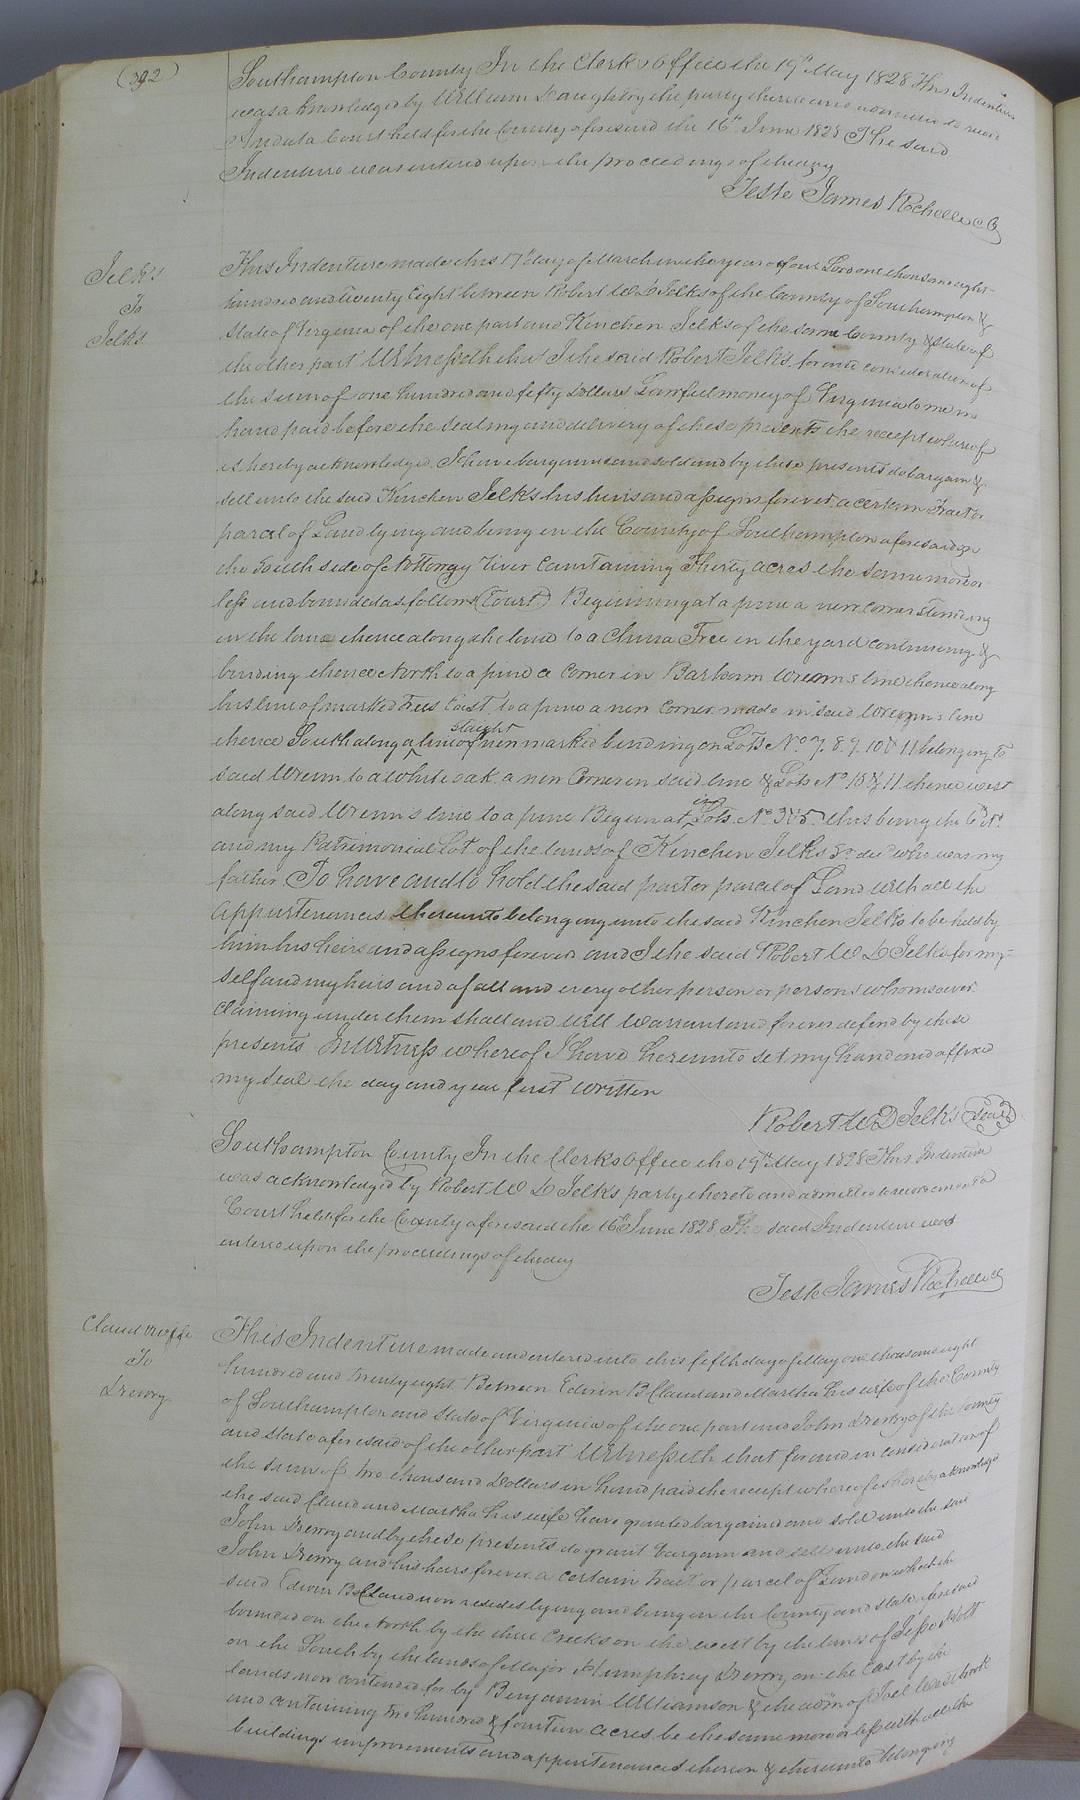 (392)
Southampton County In the Clerks Office the 19th May 1828 This Indenture
was acknowledged by William Daughtry the party thereto and admitted to record
And at a Court held for the County aforesaid the 16th June 1828 The said
Indenture was entered upon the proceedings of the day
Teste James Rochelle CC
Jelks
To
Jelks
This Indenture made this 17th day of March in the year of our Lord one thousand eight
hundred and twenty Eight between Robert W D Jelks of the County of Southampton &
State of Virginia of the one part and Kinchen Jelks of the same County & State of
the other part Witnesseth that I the said Robert Jelks, for and consideration of
the sum of one hundred and fifty dollars Lawful money of Virginia to me in
hand paid before the sealing and delivery of these presents the receipt whereof
is hereby acknowledged I have bargained and sold and by these presents do bargain &
sell unto the said Kinchen Jelks his heirs and assigns forever, a certain Tract or
parcel of Land lying and being in the County of Southampton aforesaid on
the South side of Nottoway river Containing Thirty acres the same more or
less and bounded as follows (Court) Beginning at a pine a new corner standing
in the lane thence along the land to a China Tree in the yard continuing &
binding thence North to a pine a Corner in Barham Wrenns line thence along
his line of marked Trees East to a pine a new Corner made in said Wrenns line
thence South along a straight line of new marked binding on Lots No 7. 8. 9. 10 & 11 belonging to
said Wrenn to a white oak a new Corner in said line & Lots No 10 & 11 thence west
along said Wrenn's line to a pine Begun at, Lots No 3 & 5. this being the 6th No
and my Patrimonial Lot of the lands of Kinchen Jelks Sr decd who was my
father To have and to hold the said part or parcel of Land with all the
appurtenances thereunto belonging unto the said Kinchen Jelks to be held by
him his heirs and assigns forever and I the said Robert W D Jelks for my-
self and my heirs and of all and every other person or persons whomsoever
claiming under them shall and will warrant and forever defend by these
presents In Witness whereof I have hereunto set my hand and affixed
my seal the day and year first written
Robert W D Jelks (Seal)
Southampton County In the Clerks Office the 19th May 1828 This Indenture
was acknowledged by Robert W D Jelks party thereto and admitted to record and at a
Court held for the County aforesaid the 16th June 1828 The said Indenture was
entered upon the proceedings of the day
Teste James Rochelle CC
Claud & wife
To
Drewry
This Indenture made and entered into this fifth day of May one thousand eight
hundred and twenty eight Between Edwin B Claud and Martha his wife of the County
of Southampton and State of Virginia of the one part and John Drewry of the County
and State aforesaid of the other part Witnesseth that for and in consideration of
the sum of two thousand Dollars in hand paid the receipt whereof is hereby acknowledged
the said Claud and Martha his wife have granted bargained and sold unto the said
John Drewry and by these presents do grant bargain and sell unto the said
John Drewry and his heirs forever a certain tract or parcel of Land on which the
said Edwin B Claud now resides lying and being in the County and State aforesaid
bounded on the North by the three Creeks on the west by the lands of Jesse Holt
on the South by the lands of Major Humphrey Drewry on the East by the
lands now contended for by Benjamin Williamson & the admn of Joel Westbrook
and containing two hundred & fourteen acres be the same more or less with all the
buildings improvements and appurtenances thereon & thereunto belonging